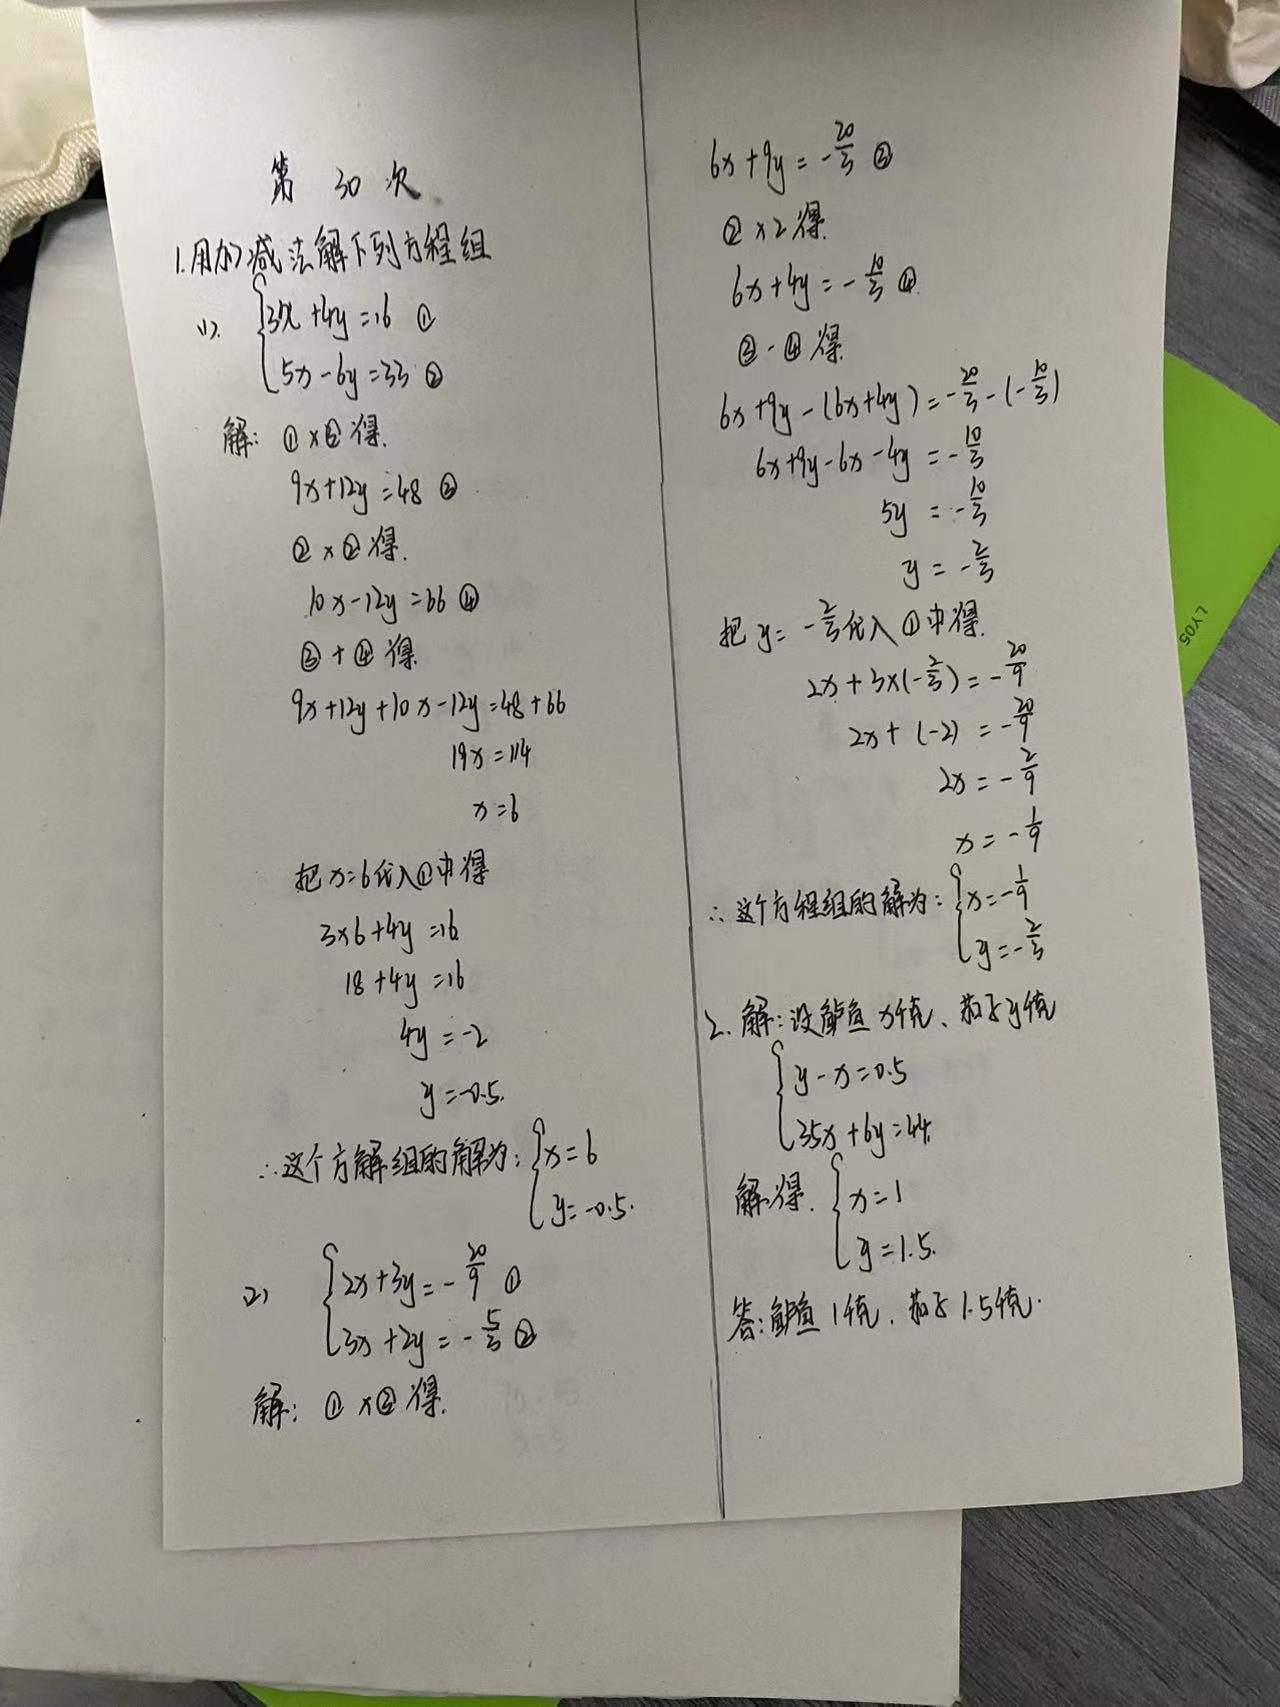 第 30 次
1.用加减法解下列方程组
(1). {3x+4y=16 ①
5x-6y=33 ②
解: ①×③得.
9x+12y=48 ③
②×②得.
10x-12y=66 ④
③+④得.
9x+12y+10x-12y=48+66
19x=114
x=6
把x=6代入①中得
3×6+4y=16
18+4y=16
4y=-2
y=-0.5.
∴这个方解组的解为:{x=6
y=-0.5.
(2) {2x+3y=-20/9 ①
3x+2y=-5/3 ②
解: ①×③得.
6x+9y=-20/3 ③
②×2得.
6x+4y=-10/3 ④.
③-④得.
6x+9y-(6x+4y)=-20/3-(-10/3)
6x+9y-6x-4y=-10/3
5y=-10/3
y=-2/3
把y=-2/3代入①中得.
2x+3×(-2/3)=-20/9
2x+(-2)=-20/9
2x=-2/9
x=-1/9
∴这个方程组的解为:{x=-1/9
y=-2/3
2.解:设鲈鱼x千克、茄子y千克
{y-x=0.5
35x+6y=44.
解得. {x=1
y=1.5.
答:鲈鱼1千克.茄子1.5千克.
LY05